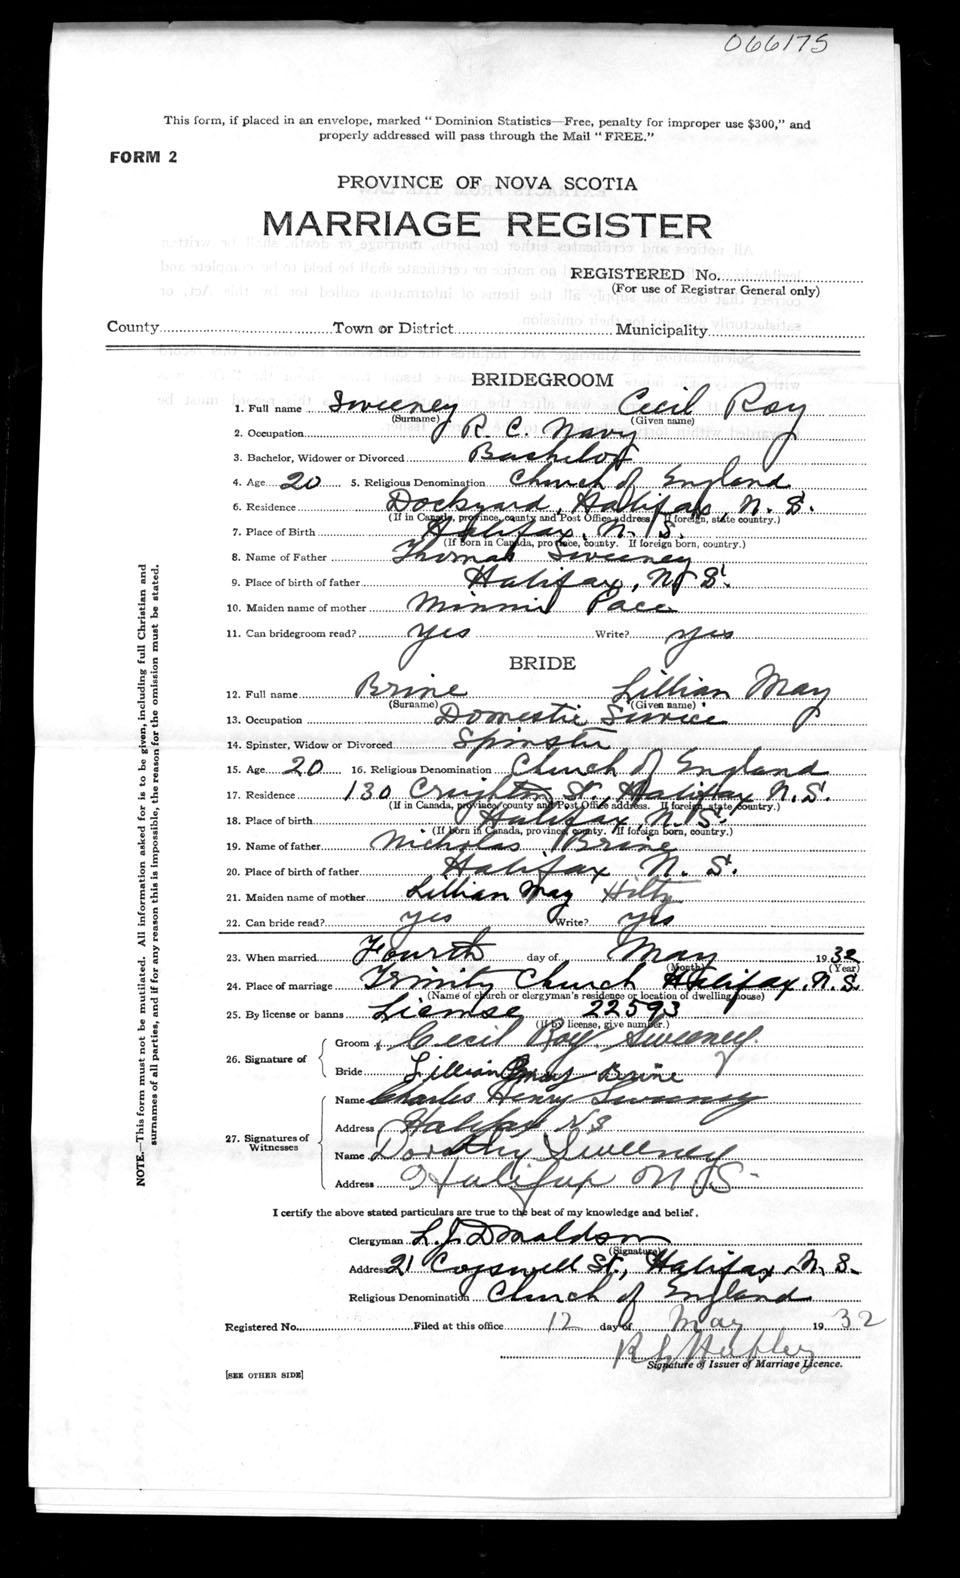 066175
This form, if placed in an envelope, marked “ Dominion Statistics—Free, penalty for improper use $300,” and
properly addressed will pass through the Mail “ FREE.”
FORM 2
PROVINCE OF NOVA SCOTIA
MARRIAGE REGISTER
REGISTERED No.
(For use of Registrar General only)
County Town or District Municipality
BRIDEGROOM
1. Full name Sweeney Cecil Roy
(Surname) (Given name)
2. Occupation R. C. Navy
3. Bachelor, Widower or Divorced Bachelor
4. Age 20 5. Religious Denomination Church of England
6. Residence Dockyard, Halifax, N. S.
(If in Canada, province, county and Post Office address. If foreign, state country.)
7. Place of Birth Halifax, N. S.
(If Born in Canada, province, county. If foreign born, country.)
8. Name of Father Thomas Sweeney
9. Place of birth of father Halifax, N. S.
10. Maiden name of mother Minnie Pace
11. Can bridegroom read? yes Write? yes
BRIDE
12. Full name Brine Lillian May
(Surname) (Given name)
13. Occupation Domestic Service
14. Spinster, Widow or Divorced Spinster
15. Age 20 16. Religious Denomination Church of England
17. Residence 130 Creighton St., Halifax N. S.
(If in Canada, province county and Post Office address. If foreign, state country.)
18. Place of birth Halifax, N. S.
(If born in Canada, province, county. If foreign born, country.)
19. Name of father Nicholas Brine
20. Place of birth of father Halifax N. S.
21. Maiden name of mother Lillian May Hilty
22. Can bride read? yes Write? yes
23. When married Fourth day of May 1932
(Month) (Year)
24. Place of marriage Trinity Church Halifax, N. S
(Name of church or clergyman's residence or location of dwelling house)
25. By license or banns License 22593
(If by license, give number.)
26. Signature of
Groom Cecil Roy Sweeney.
Bride Lillian May Brine
27. Signatures of
Witnesses
Name Charles Henry Sweeney
Address Halifax N S
Name Dorothy Sweeney
Address Halifax N. S.
I certify the above stated particulars are true to the best of my knowledge and belief.
Clergyman L. J. Donaldson
(Signature)
Address 21 Cogswell St., Halifax, N. S.
Religious Denomination Church of England
Registered No. Filed at this office 12 day of May 1932
Signature of Issuer of Marriage Licence.
[SEE OTHER SIDE]
NOTE.—This form must not be mutilated. All information asked for is to be given, including full Christian and
surnames of all parties, and if for any reason this is impossible, the reason for the omission must be stated.